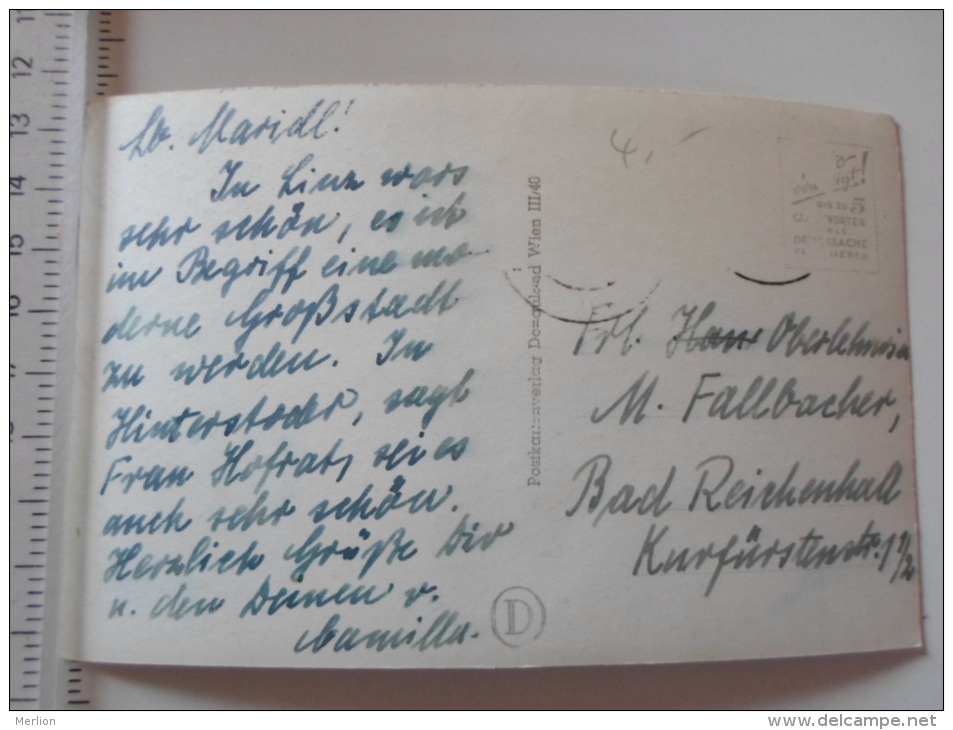 Lb. Maridl!
In Linz wars
sehr schön, es ich
im Begriff eine mo-
derne Großstadt
zu werden. In
Hinterstoder, sagt
Frau Hofrat, sei es
auch sehr schön.
Herzlich Grüße Dir
u. den Deinen v.
Camilla.
Postkartenverlag Wien III/40
D
4,-
BIS ZU 5
WORTEN
ALS
Frl. Oberlehrerin
M. Fallbacher,
Bad Reichenhall
Kurfürstenstr. 1 1/2
11
12
13
14
15
16
17
Merlion
www.delcampe.net